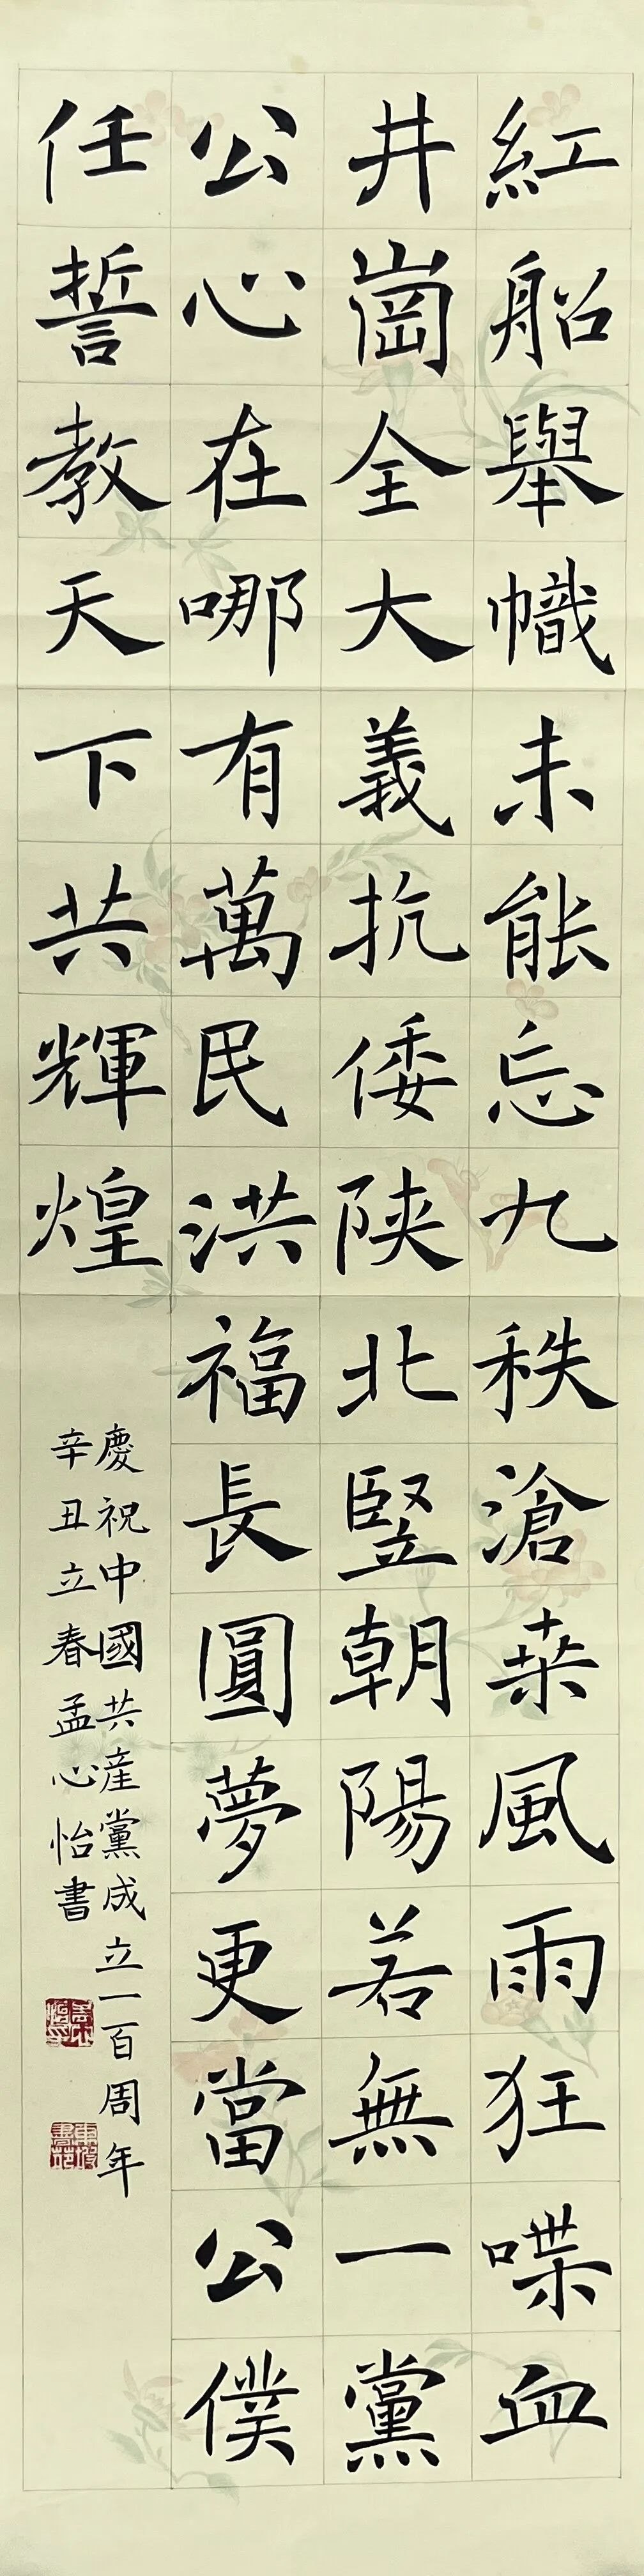 紅船舉幟未能忘九秩滄桒風雨狂喋血
井崗全大義抗倭陝北竪朝陽若無一黨
公心在哪有萬民洪福長圓夢更當公僕
任誓教天下共輝煌
慶祝中國共產黨成立一百周年
辛丑立春孟心怡書